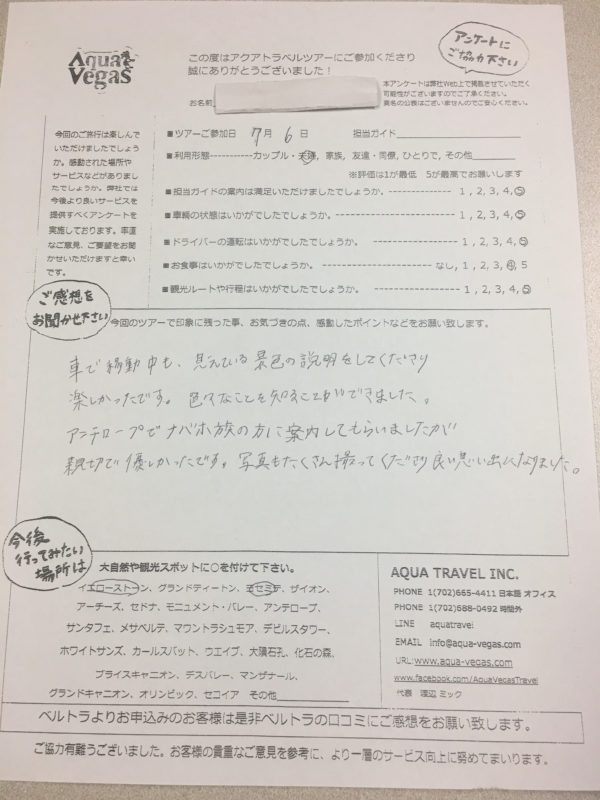 Aqua Vegas
この度はアクアトラベルツアーにご参加くださり
誠にありがとうございました！
アンケートに
ご協力下さい
本アンケートは弊社Web上で掲載させていただく
可能性がございますのでご了承ください。
実名の公表はございませんのでご安心ください。
お名前
今回のご旅行は楽しんで
いただけましたでしょう
か。感動された場所や
サービスなどがありまし
たでしょうか。弊社では
今後より良いサービスを
提供すべくアンケートを
実施しております。率直
なご意見、ご要望をお聞
かせいただけますと幸い
です。
■ツアーご参加日 7月 6日 担当ガイド
■利用形態-----------カップル・夫婦, 家族, 友達・同僚, ひとりで, その他
※評価は1が最低 5が最高でお願いします
■担当ガイドの案内は満足いただけましたでしょうか。---------------- 1, 2, 3, 4, 5
■車輌の状態はいかがでしたでしょうか。---------------------- 1, 2, 3, 4, 5
■ドライバーの運転はいかがでしたでしょうか。 ------------------ 1, 2, 3, 4, 5
■お食事はいかがでしたでしょうか。 ---------------------- なし, 1, 2, 3, 4, 5
■観光ルートや行程はいかがでしたでしょうか。------------------- 1, 2, 3, 4, 5
ご感想を
お聞かせ下さい
今回のツアーで印象に残った事、お気づきの点、感動したポイントなどをお願い致します。
車で移動中も、見えている景色の説明をしてくださり
楽しかったです。色々なことを知ることができました。
アンテロープでナバホ族の方に案内してもらいましたが
親切で優しかったです。写真もたくさん撮ってくださり良い思い出になりました。
今後
行ってみたい
場所は
大自然や観光スポットに○を付けて下さい。
イエローストーン、グランドティートン、ヨセミテ、ザイオン、
アーチーズ、セドナ、モニュメント・バレー、アンテロープ、
サンタフェ、メサベルテ、マウントラシュモア、デビルスタワー、
ホワイトサンズ、カールスバット、ウエイブ、大隕石孔、化石の森、
ブライスキャニオン、デスバレー、マンザナール、
グランドキャニオン、オリンピック、セコイア その他
AQUA TRAVEL INC.
PHONE 1(702)665-4411 日本語 オフィス
PHONE 1(702)688-0492 時間外
LINE aquatravel
EMAIL info@aqua-vegas.com
URL:www.aqua-vegas.com
www.facebook.com/AquaVegasTravel
代表 渡辺 ミック
ベルトラよりお申込みのお客様は是非ベルトラの口コミにご感想をお願い致します。
ご協力有難うございました。お客様の貴重なご意見を参考に、より一層のサービス向上に努めてまいります。